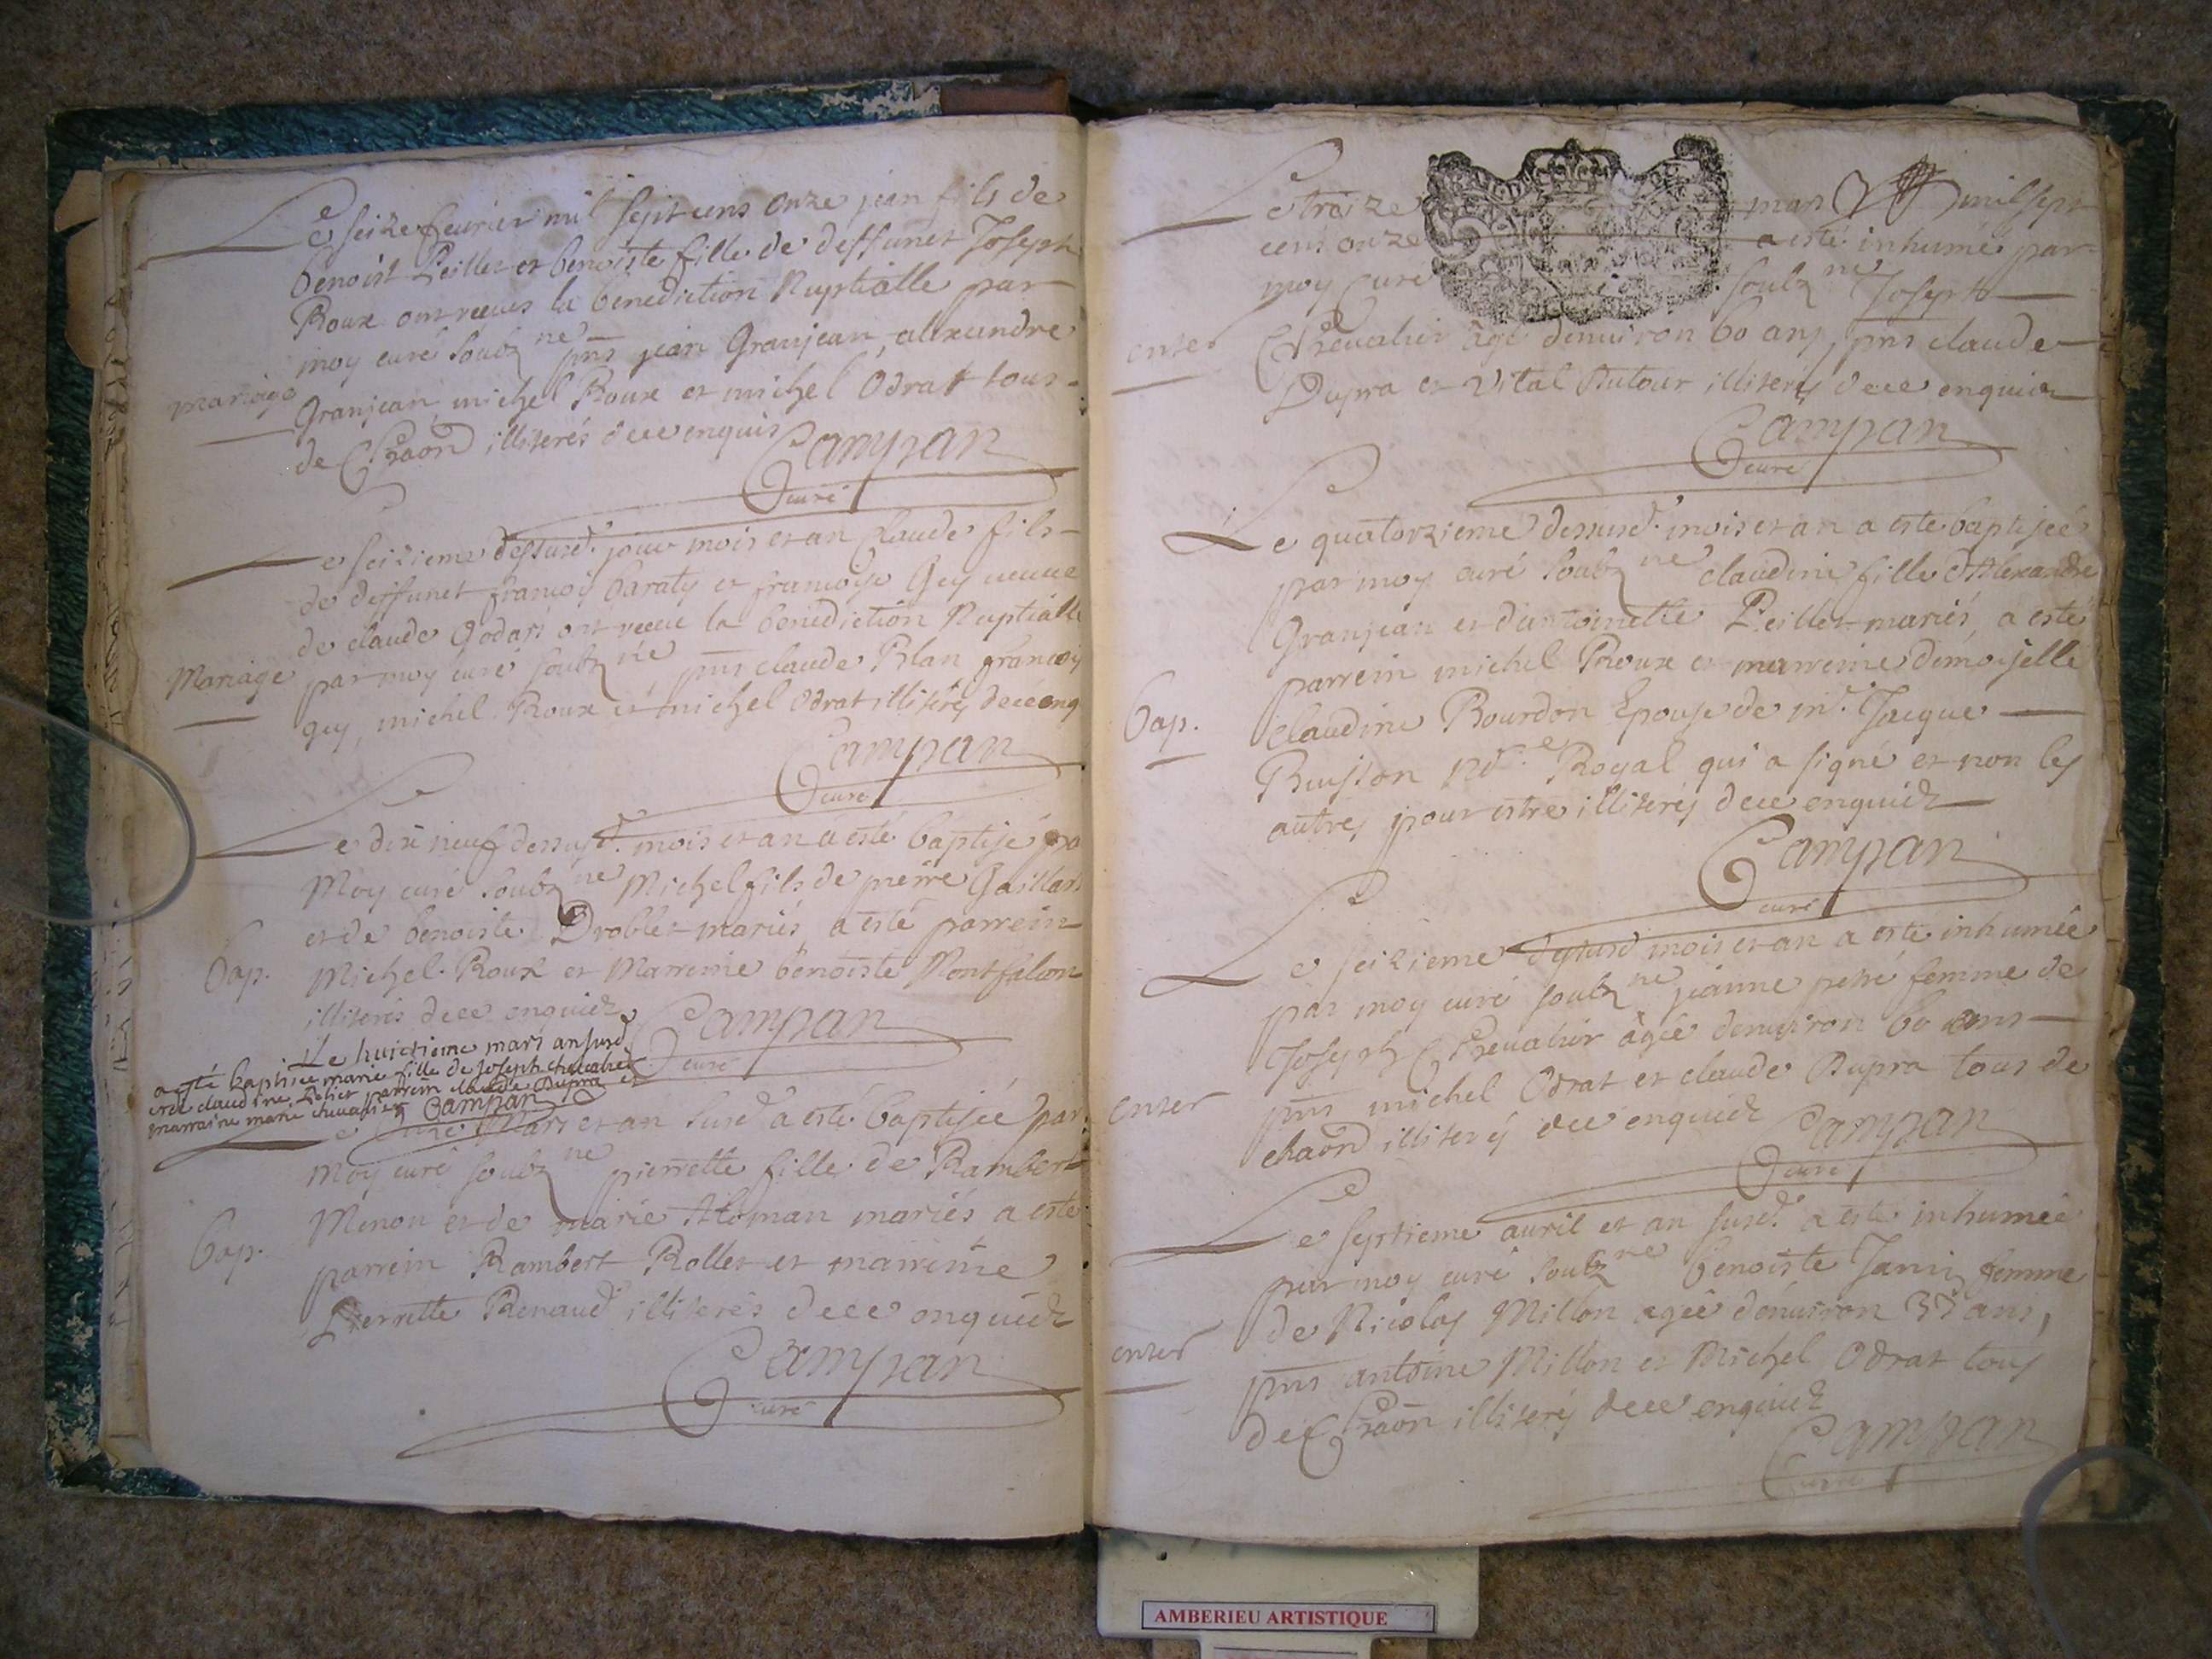 Le seize feurier mil sept cens onze jean fils de
benoist Peillet et benoiste fille de deffunct Joseph
Roux ont receus la benediction Nuptialle par
moy curé soubz.né pns jean Granjean, alexandre
mariage
Granjean michel Roux et michel Odrat tous
de Chaon illiterés de ce enquis
Campan
curé
Le seizieme dessusd. jour mois et an Claude fils
de deffunct françois baraty et françoise Gey ueuue
de claude Godart ont receu la benediction Nuptialle
Mariage
par moy curé soubz.né pns claude Blan françois
gey, michel Roux et michel Odrat illiterés de ce enq
Campan
curé
Le dix neuf dessusd. mois et an a esté baptisé par
Moy curé soubz.né Michel fils de pierre Gaillard
et de benoiste Droblet mariés, a esté parrein
Bap.
Michel Roux et Marreine benoiste Montfalcon
illiterés de ce enquidz
Campan
curé
Le huictieme mars an susd
a esté baptisée marie fille de Joseph chevalier
et de claudine Peliet parrein claude Dupra et
marraine marie chevalier Campan
Le onze Mars et an susd a esté baptisée par
Moy curé soubz.né pierrette fille de Rambert
Menon et de marie Aloman mariés a esté
Bap.
parrein Rambert Rollet et marreine
Pierrette Renaud illiterés de ce enquidz
Campan
curé
Le traize mars mil sept
cens onze a esté inhumé par
moy Curé soubz.né Joseph
enter
Chevalier âgé denuiron 60 ans, pns claude
Dupra et Vital Dutour illiterés de ce enquidz
Campan
curé
Le quatorzieme dessusd. mois et an a esté baptisée
par moy curé soubz.né claudine fille d'Alexandre
Granjean et d'antoinette Peillet mariés, a esté
parrein michel Roux et marreine demoiselle
Bap.
Claudine Bourdon Epouse de mr. Jacque
Buisson Nre. Royal qui a signé et non les
autres pour estre illiterés de ce enquidz
Campan
curé
Le seizieme dessusd mois et an a esté inhumée
par moy curé soubz.né jeanne petré femme de
Joseph Chevalier âgée denuiron 60 ans
enter
pns michel Odrat et claude Dupra tous de
chaon illiterés de ce enquidz
Campan
curé
Le septieme auril et an susd. a esté inhumée
par moy curé soubz.né benoiste Jani femme
de Nicolas Millon agée denuiron 37 ans,
enter
pns antoine Millon et Michel Odrat tous
de Chaon illiterés de ce enquidz
Campan
Curé
AMBERIEU ARTISTIQUE